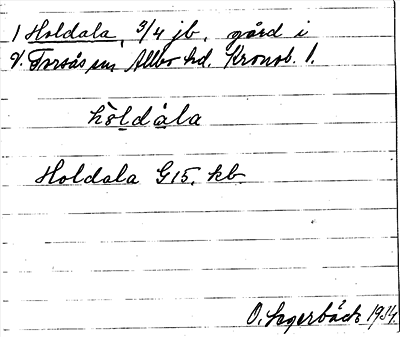 1 Holdala, 3/4 jb, gård i
V. Torsås sn Allbo hd. Kronob. l.
hòldàla
Holdala G15. kb.
O. Lagerbäck 1914.